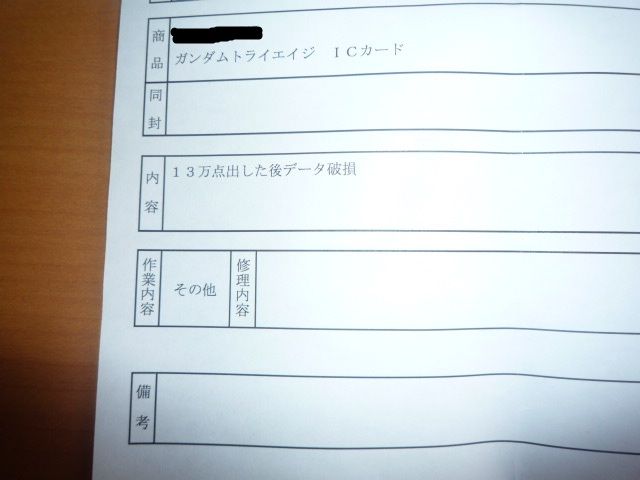 商品
ガンダムトライエイジ　ＩＣカード
同封
内容
１３万点出した後データ破損
作業内容
その他
修理内容
備考